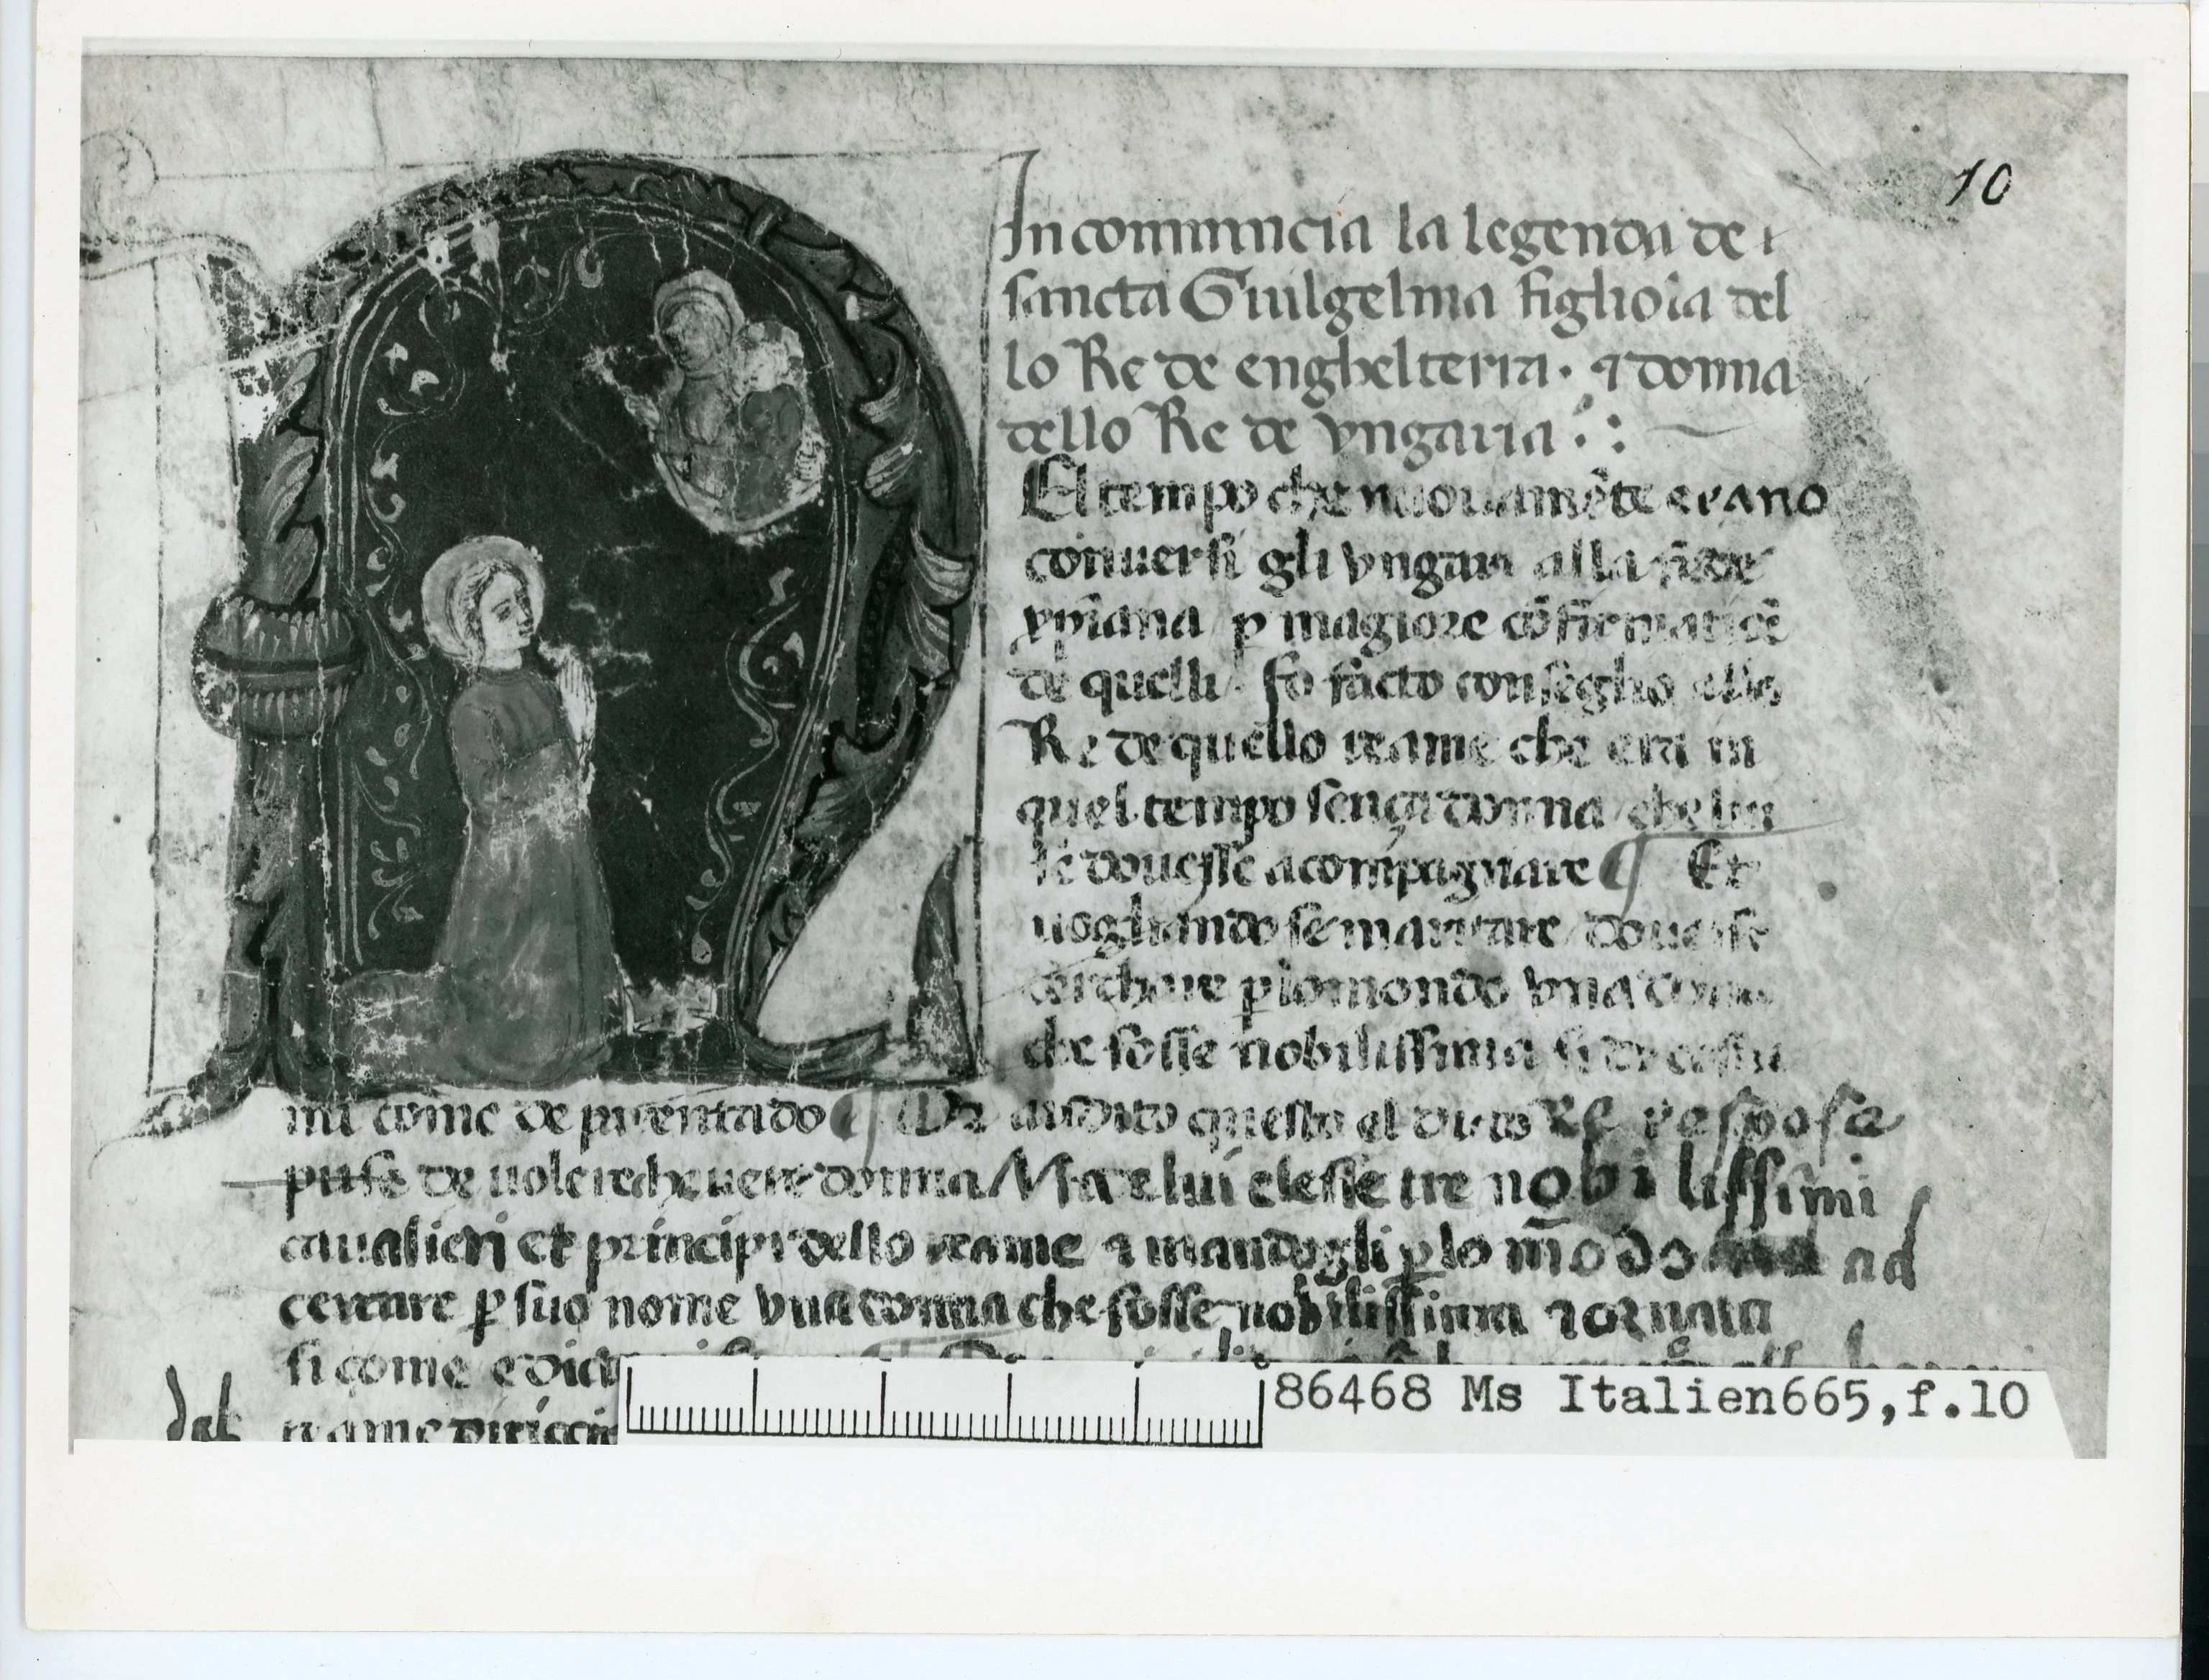 10
Incomincia la legenda de
sancta Guilgelma figliola del
lo Re de enghelterra · ⁊ donna
dello Re de vngaria
El tempo che nuouamēte erano
conuersi gli vngari alla fede
xp̄iana p magiore cōfirmatiōe
de quelli · fo facto conseglio allo
Re de quello reame che era in
quel tempo sença donna / che lui
se douesse acompagnare ¶ Et
uogliando se maritare / douesse
cerchare p lo mondo vna donna
che fosse nobilissima si de costu
mi come de parentado ¶ Vdito questo el dicto Re respose
de uolere donna Ma lui elesse tre nobilissimi
caualieri et principi dello reame ⁊ mandogli p lo mōdo ad
cercare p suo nome vna donna che fosse nobilissima ⁊ ornata
si come e dict
reame
86468 Ms Italien665,f.10